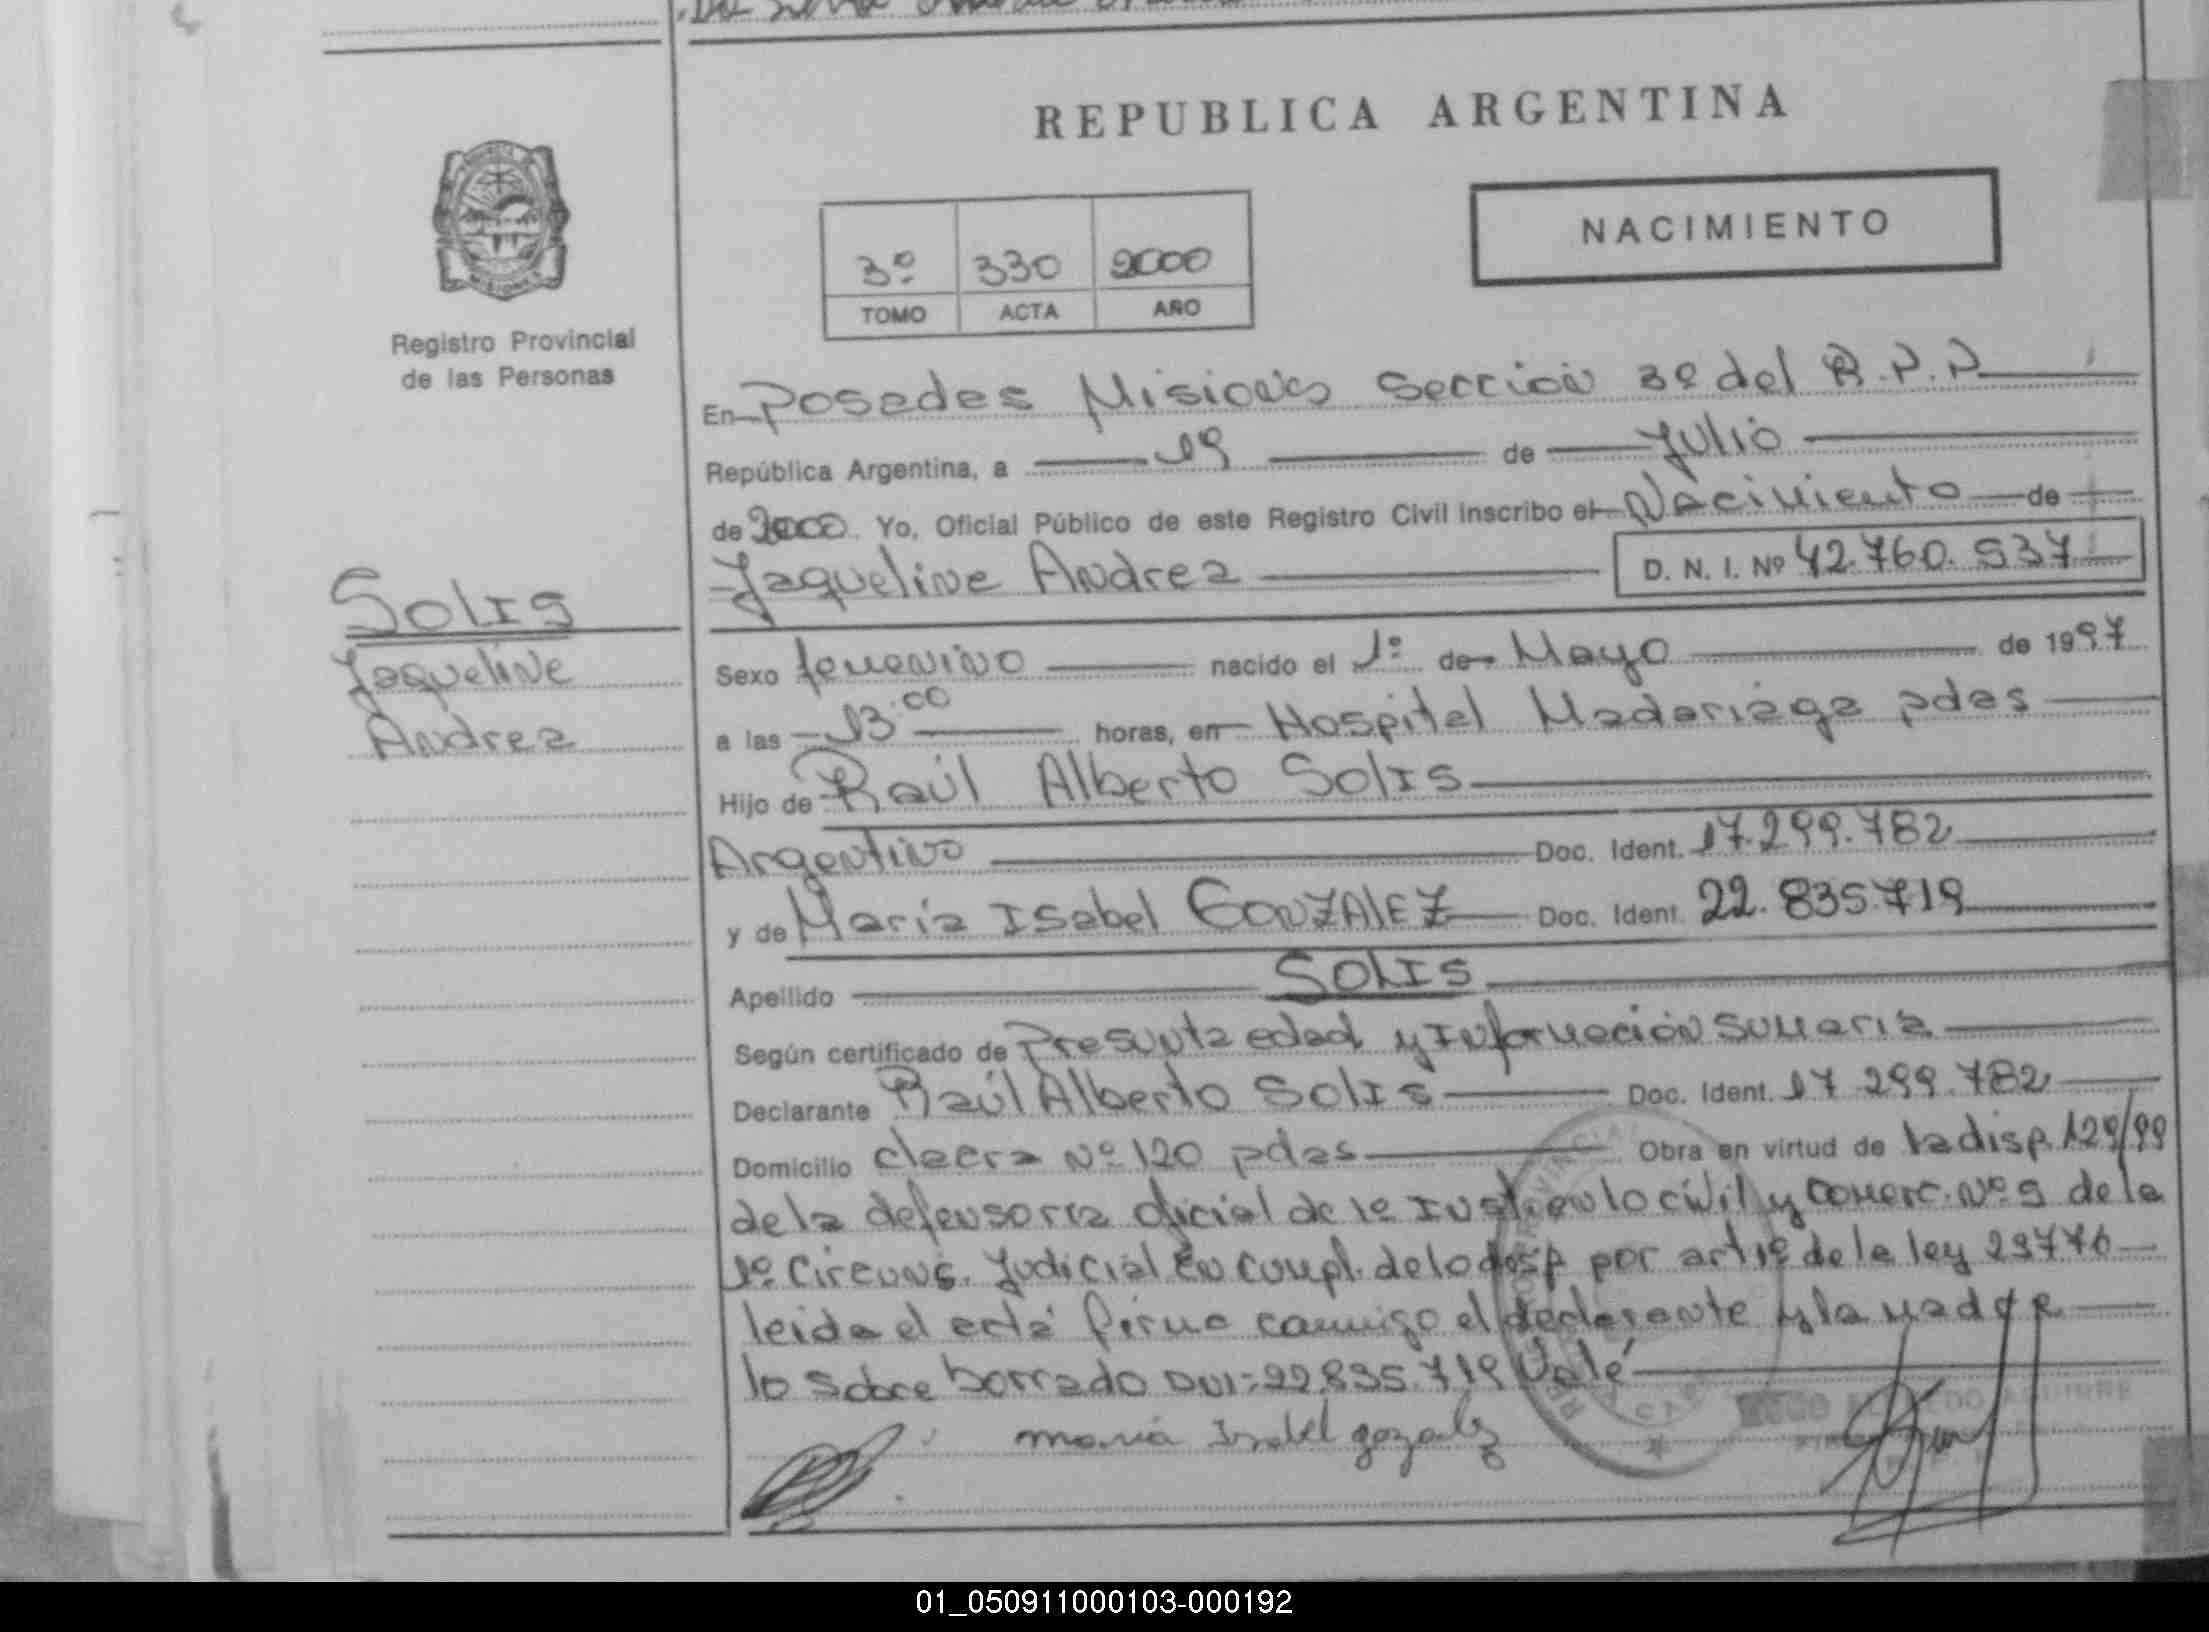 REPUBLICA ARGENTINA
NACIMIENTO
3º 330 2000
TOMO ACTA AÑO
Registro Provincial
de las Personas
En Posadas Misiones Sección 3º del R.P.P
República Argentina, a 19 de Julio
de 2000. Yo, Oficial Público de este Registro Civil inscribo el Nacimiento de
Jaqueline Andrea D. N. I. Nº 42.760.537
SOLIS
Jaqueline
Andrea
Sexo femenino nacido el 1º de Mayo de 1997
a las 13:00 horas, en Hospital Madariaga pdas
Hijo de Raúl Alberto Solis
Argentino Doc. Ident. 17.299.782
y de María Isabel GONZALEZ Doc. Ident. 22.835.719
Apellido SOLIS
Según certificado de Presunta edad y Información Sumaria
Declarante Raúl Alberto Solis Doc. Ident. 17 299.782
Domicilio chacra Nº 120 pdas Obra en virtud de la disp. 129/99
de la defensoria oficial de 1º Inst. en lo civil y comerc. Nº 5 de la
1º Circuns. Judicial en cumpl. de lo disp por art 1º de la ley 23776
leida el acta firma conmigo el declarante y la madre
lo sobre borrado DNI: 22.835.719 Valé
maria Isabel gozalez
01_050911000103-000192